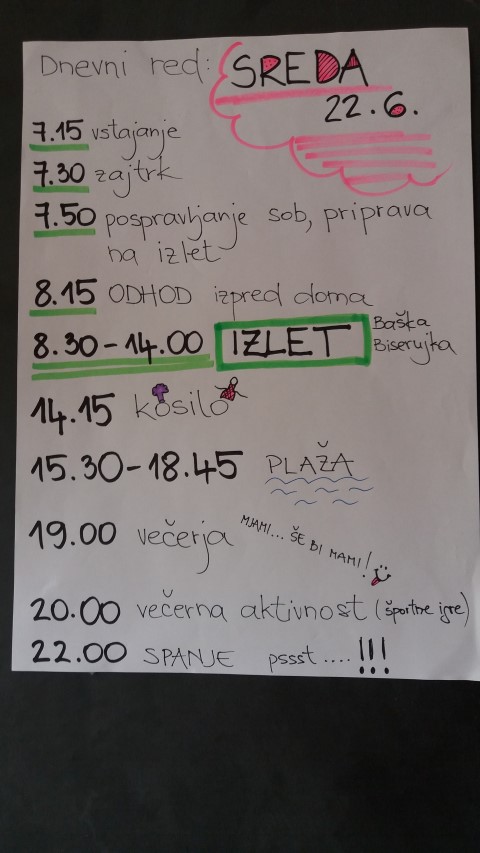 Dnevni red: SREDA
22.6.
7.15 vstajanje
7.30 zajtrk
7.50 pospravljanje sob, priprava
na izlet
8.15 ODHOD izpred doma
8.30-14.00 IZLET Baška
Biserujka
14.15 kosilo
15.30-18.45 PLAŽA
19.00 večerja MJAMI... ŠE BI MAMI!
20.00 večerna aktivnost (športne igre)
22.00 SPANJE pssst....!!!